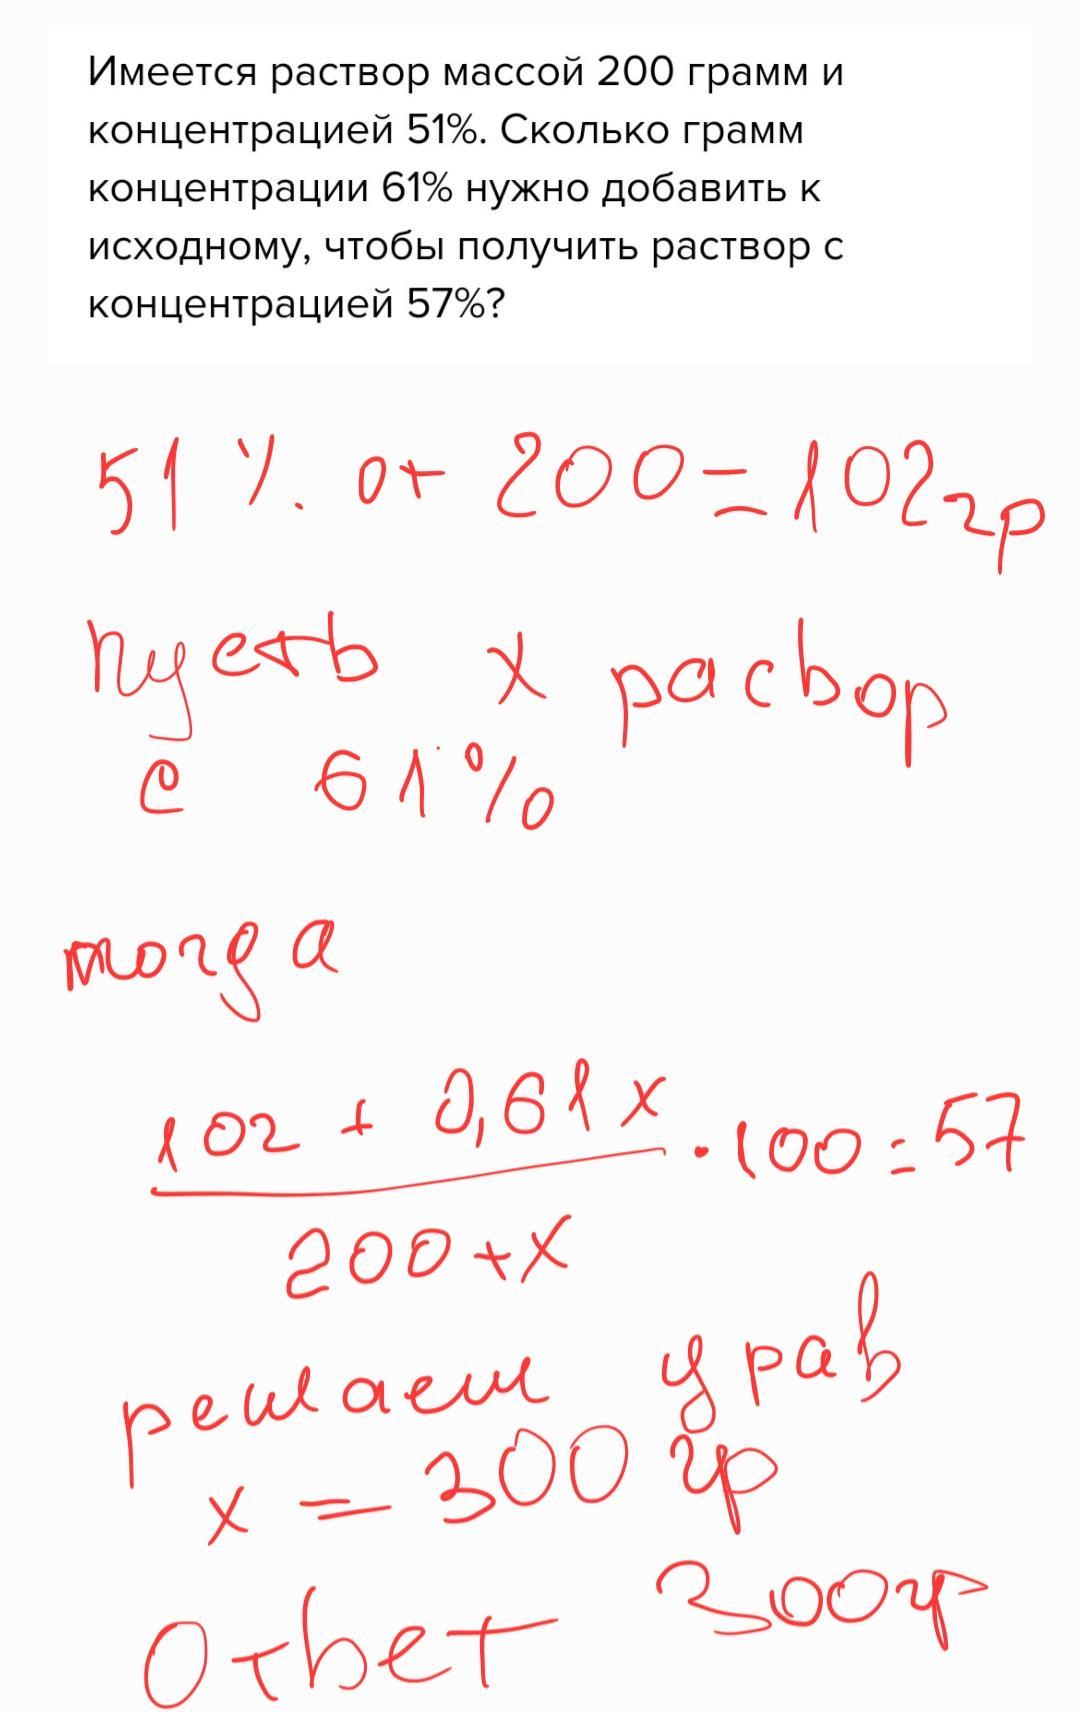 Имеется раствор массой 200 грамм и
концентрацией 51%. Сколько грамм
концентрации 61% нужно добавить к
исходному, чтобы получить раствор с
концентрацией 57%?
51 %. от 200 = 102 гр
пусть x расвор
с 61%
тогда
102 + 0,61x / 200 + x · 100 = 57
решаем урав
x = 300 гр
Ответ 300гр